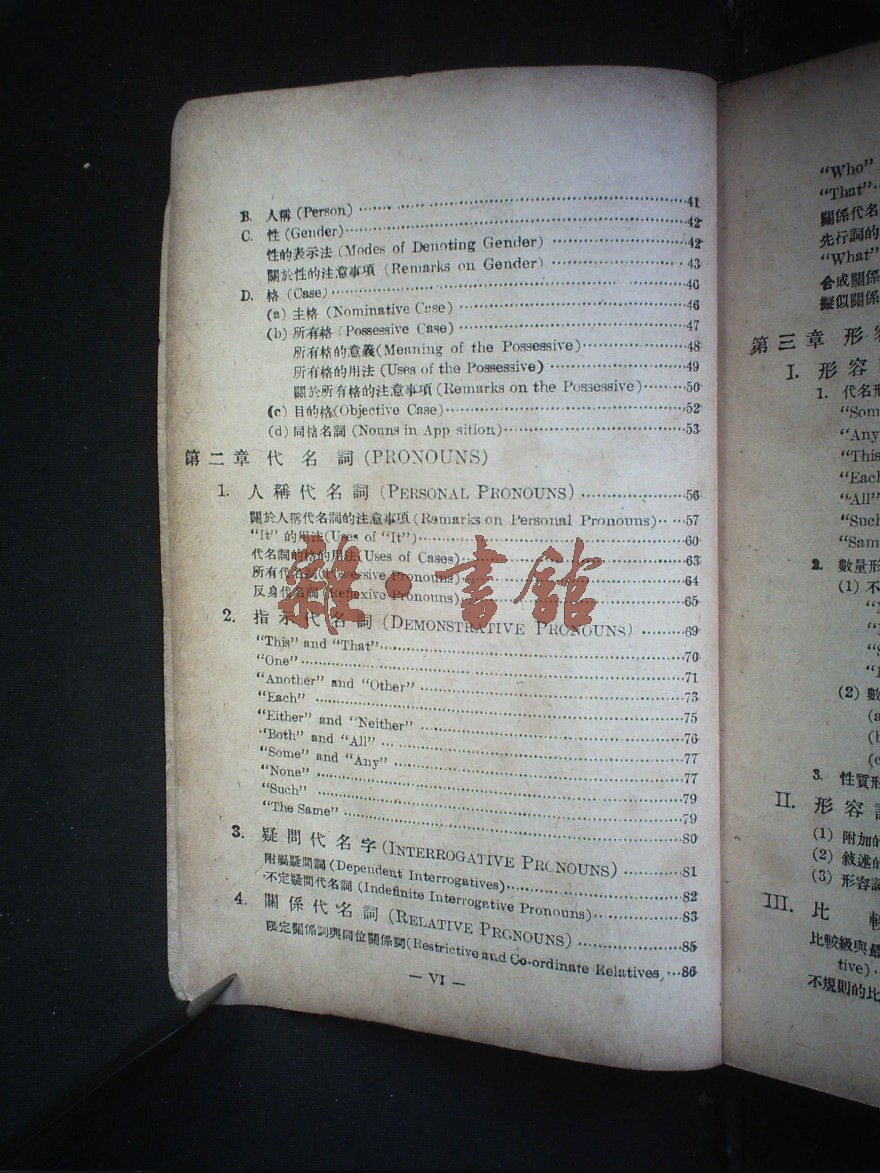 B. 人稱 (Person) ……41
C. 性 (Gender)……42
性的表示法 (Modes of Denoting Gender) ……42
關於性的注意事項 (Remarks on Gender) ……43
D. 格 (Case)……46
(a) 主格 (Nominative Case) ……46
(b) 所有格 (Possessive Case) ……47
所有格的意義(Meaning of the Possessive)……48
所有格的用法 (Uses of the Possessive) ……49
關於所有格的注意事項 (Remarks on the Possessive)……50
(c) 目的格(Objective Case)……52
(d) 同格名詞 (Nouns in App sition)……53
第二章 代名詞 (PRONOUNS)
1. 人稱代名詞 (PERSONAL PRONOUNS) ……56
關於人稱代名詞的注意事項 (Remarks on Personal Pronouns)……57
"It" 的用法(Uses of "It")……60
代名詞的格的用法(Uses of Cases)……63
所有代名詞(Possessive Pronouns)……64
反身代名詞 (Reflexive Pronouns)……65
雜·書館
2. 指示代名詞 (DEMONSTRATIVE PRONOUNS) ……69
"This" and "That"……70
"One"……71
"Another" and "Other" ……73
"Each" ……75
"Either" and "Neither" ……76
"Both" and "All" ……77
"Some" and "Any" ……77
"None" ……79
"Such" ……79
"The Same" ……80
3. 疑問代名字 (INTERROGATIVE PRONOUNS) ……81
附屬疑問詞 (Dependent Interrogatives)……82
不定疑問代名詞 (Indefinite Interrogative Pronouns)……83
4. 關係代名詞 (RELATIVE PRONOUNS) ……85
限定關係詞與同位關係詞(Restrictive and Co-ordinate Relatives)……86
— VI —
"Who"
"That"…
關係代名
先行詞的
"What"
合成關係
擬似關係
第三章 形容
I. 形容
1. 代名形
"Som
"Any
"This
"Each
"All"
"Such
"Sam
2. 數量形
(1) 不
(2) 數
(a
(b
(c
3. 性質形
II. 形容詞
(1) 附加的
(2) 敘述的
(3) 形容詞
III. 比較
比較級與最
tive)·
不規則的比